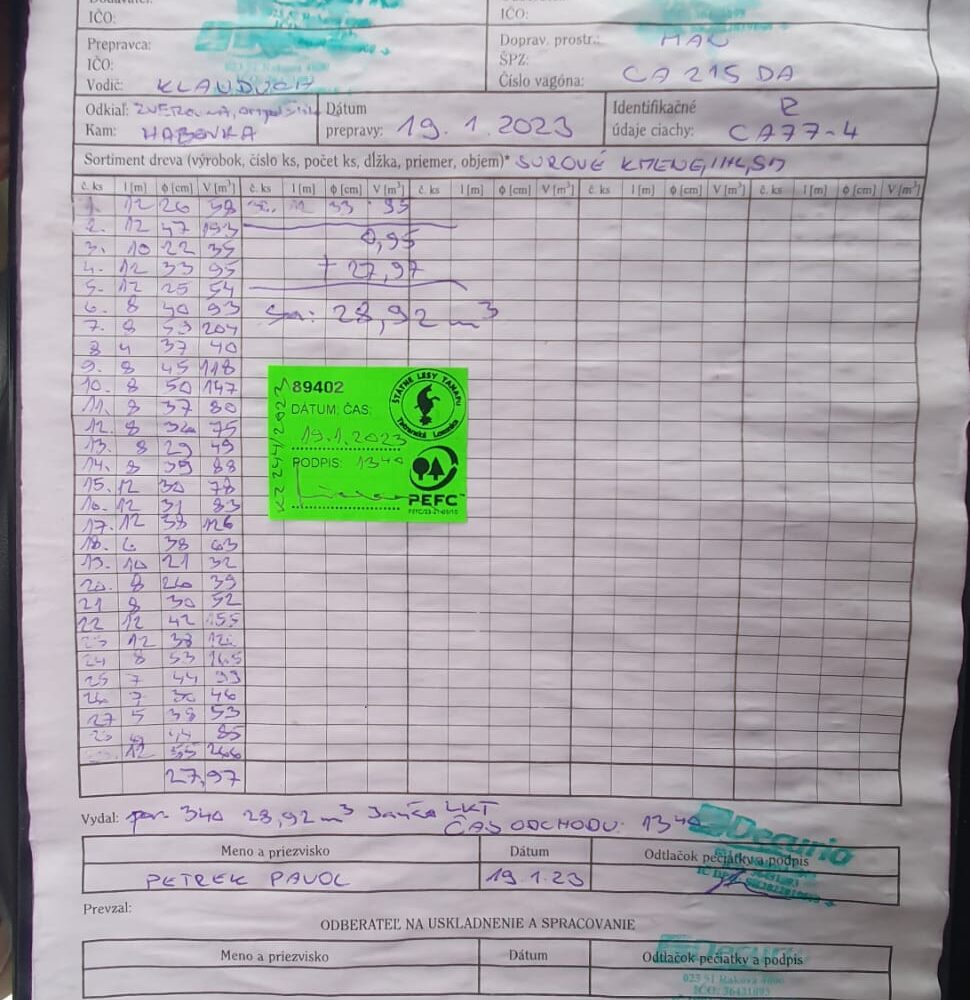 IČO:
IČO:
Prepravca:
IČO:
Vodič: KLAUDUCH
Doprav. prostr.: MAN
ŠPZ:
Číslo vagóna: CA 215 DA
Odkiaľ: ZVEROVKA,
Kam: HABOVKA
Dátum
prepravy: 19.1.2023
Identifikačné R
údaje ciachy: CA77-4
Sortiment dreva (výrobok, číslo ks, počet ks, dĺžka, priemer, objem)* SUROVÉ KMENE, SM
č. ks l [m] ϕ [cm] V [m³] č. ks l [m] ϕ [cm] V [m³] č. ks l [m] ϕ [cm] V [m³] č. ks l [m] ϕ [cm] V [m³] č. ks l [m] ϕ [cm] V [m³]
1. 12 26 58 12 33 95
2. 12 47 193
0,95
3. 10 22 35
4. 12 33 95 + 27,97
5. 12 25 54
6. 8 40 93 Sa: 28,92 m³
7. 8 59 204
8 4 37 40
9. 8 45 118
10. 8 50 147
11. 8 37 80
12. 8 36 75
13. 8 29 49
14. 8 39 88
15. 12 30 78
16. 12 31 83
17. 12 38 126
18. 6 38 63
19. 10 21 32
20. 8 26 39
21 8 30 52
22 12 42 155
23 12 38 126
24 8 53 165
25 7 44 99
26 7 30 46
27 5 39 53
85
12 55 266
27,97
89402
DÁTUM: ČAS:
19.1.2023
PODPIS: 13 40
KZ 244/2023
ŠTÁTNE LESY TANAPU
Tatranská Lomnica
PEFC
Vydal: por. 340 28,92 m³ LKT
ČAS ODCHODU: 13 40
Decurio
Meno a priezvisko Dátum Odtlačok pečiatky a podpis
PETREK PAVOL 19.1.23
Prevzal:
ODBERATEĽ NA USKLADNENIE A SPRACOVANIE
Decurio
Meno a priezvisko Dátum Odtlačok pečiatky a podpis
023 51 Raková
IČO: 36431893